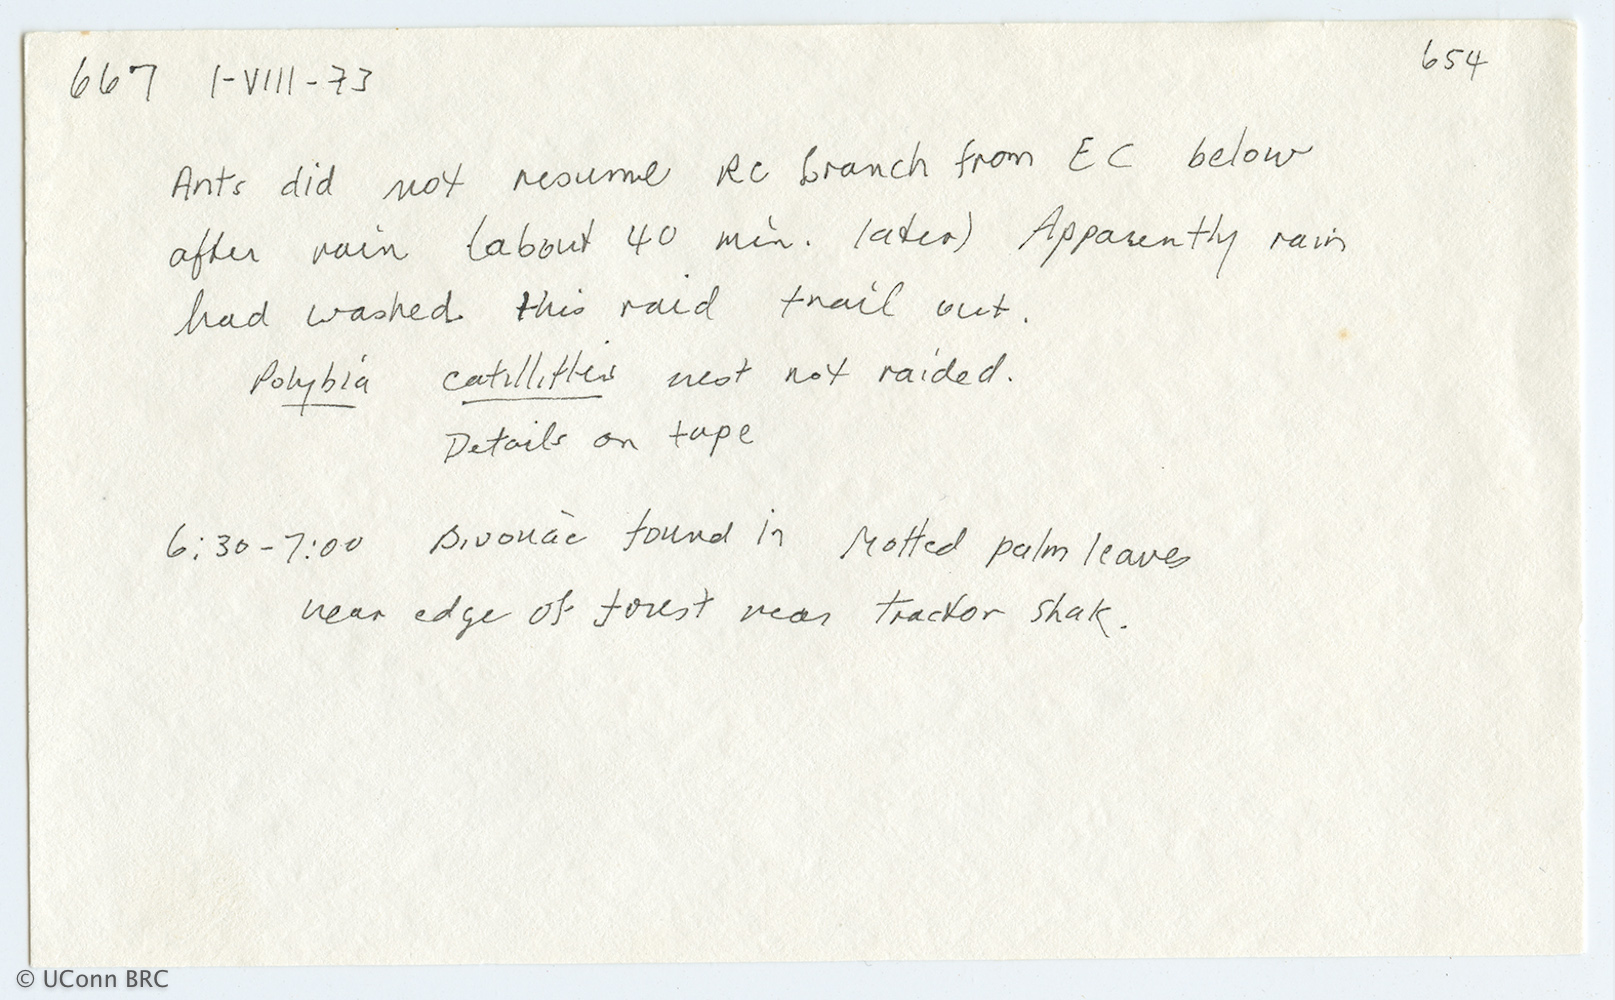 667 1-VIII-73 654
Ants did not resume RC branch from EC below
after rain (about 40 min. later) Apparently rain
had washed this raid trail out.
Polybia nest not raided.
Details on tape
6:30-7:00 Bivouac found in Rotted palm leaves
near edge of forest near tractor shak.
© UConn BRC